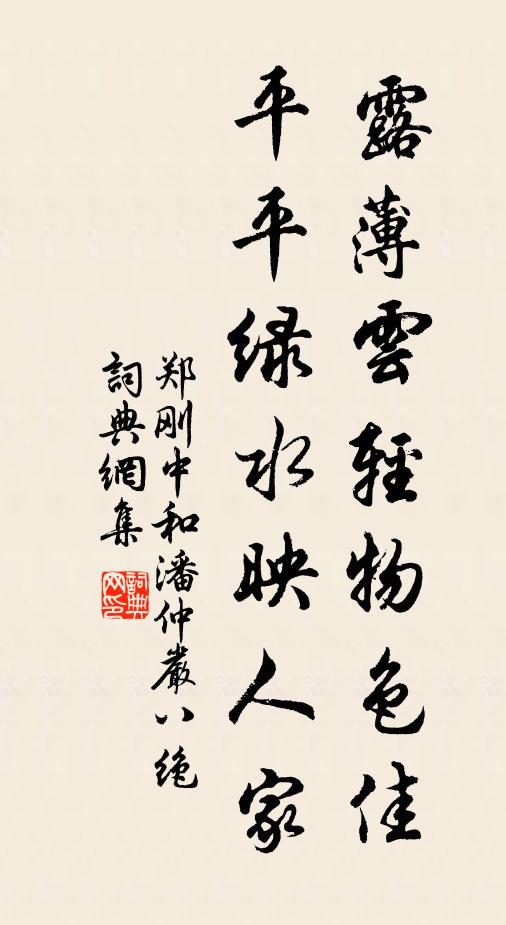 露薄雲輕物色佳
平平緑水映人家
郑刚中和潘仲嚴八绝
詞典網集
詞典网印